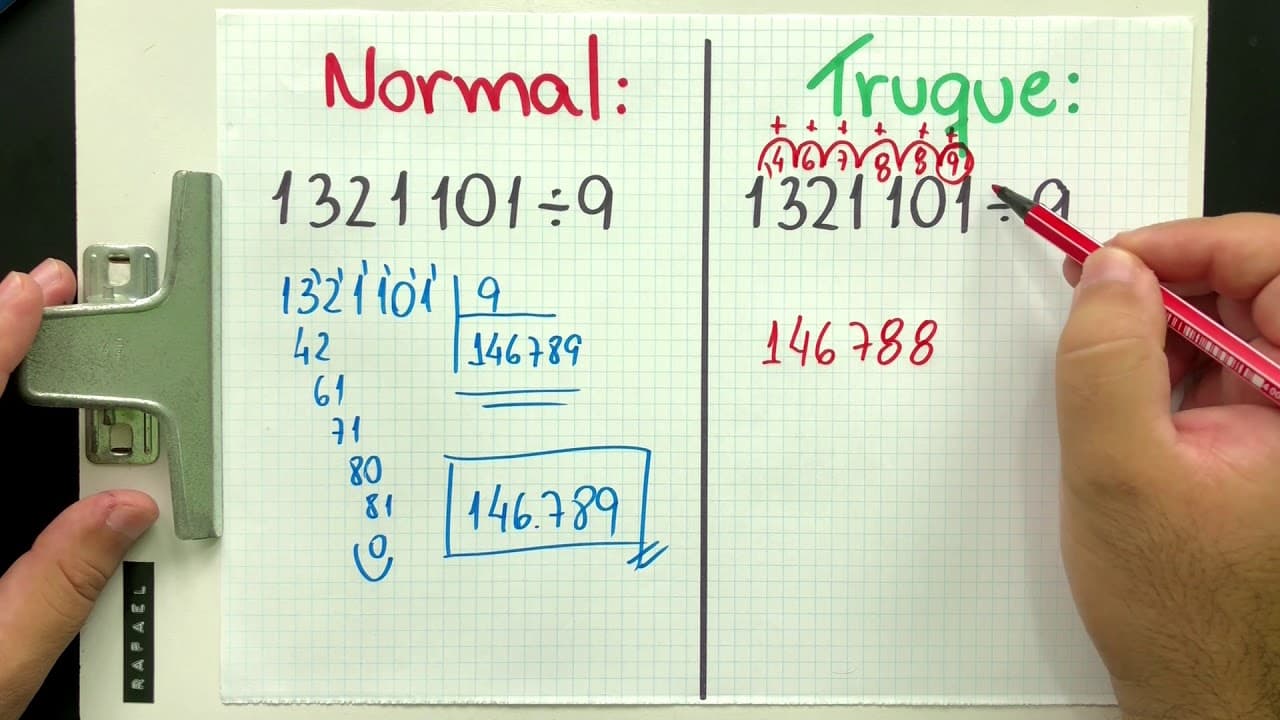 Normal:
1321101÷9
1321101 9
42 146789
61
71
80
81
0
146.789
Truque:
+ + + + + +
4 6 7 8 8 9
1321101÷9
146788
RAFAEL